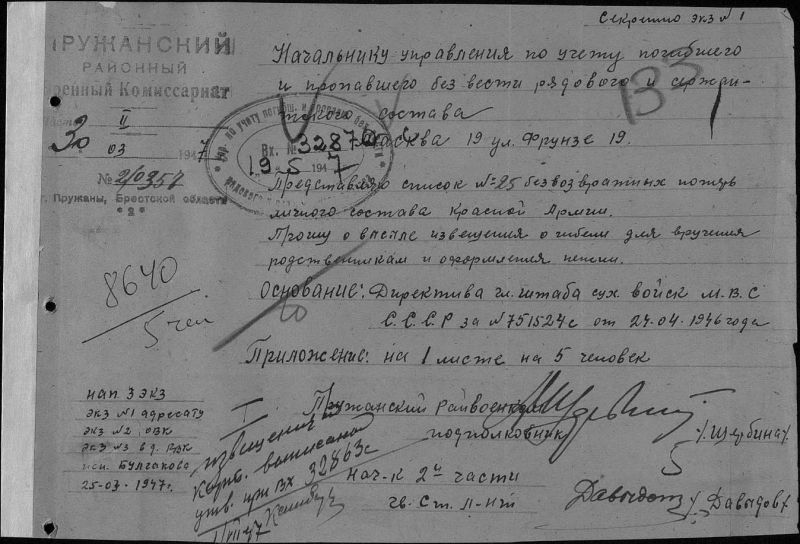 Секретно экз №1
ПРУЖАНСКИЙ
РАЙОННЫЙ
Военный Комиссариат
Часть II
30 03 1947
№ 2/0357
г. Пружаны, Брестской области
* 2 *
Вх. №
19 5 1947
Начальнику управления по учету погибшего
и пропавшего без вести рядового и сержант-
ского состава
Москва 19 ул. Фрунзе 19.
133
Представляю список №25 безвозвратных потерь
личного состава Красной Армии.
Прошу о высылке извещения о гибели для вручения
родственникам и оформления пенсии.
Основание: Директива гл. штаба сух. войск М.В.С
С.С.С.Р за №751524с от 24.04.1946 года
Приложение: на 1 листе на 5 человек
8640
5 чел
Пружанский Райвоенком
подполковник
/Щербина/
5
нач-к 2й части
гв. Ст. Л-нт
/Давыдов/
нап 3 экз
экз №1 адресату
экз №2 ОВК
экз №3 в д. РВК
исп. Булгакова
25-03-1947г.
извещения
выписано
при вх 32863с